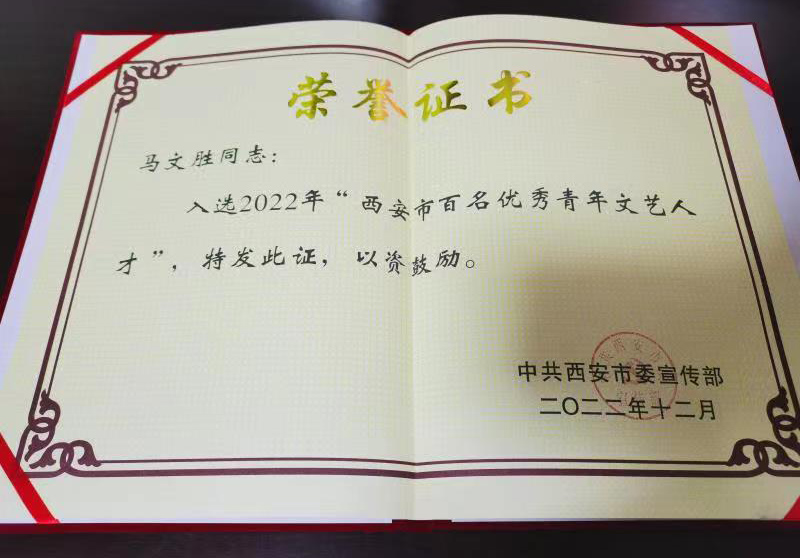 荣誉证书
马文胜同志：
入选2022年“西安市百名优秀青年文艺人
才”，特发此证，以资鼓励。
中共西安市委宣传部
二〇二二年十二月